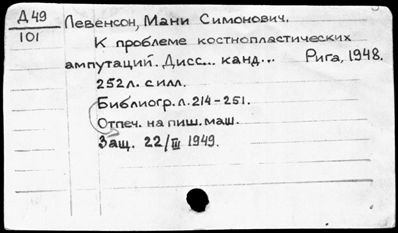 Д49
101
Левенсон, Мани Симонович.
К проблеме костнопластических
ампутаций. Дисс... канд... Рига, 1948.
252л. с илл.
Библиогр. л. 214-251.
Отпеч. на пиш. маш.
Защ. 22/III 1949.